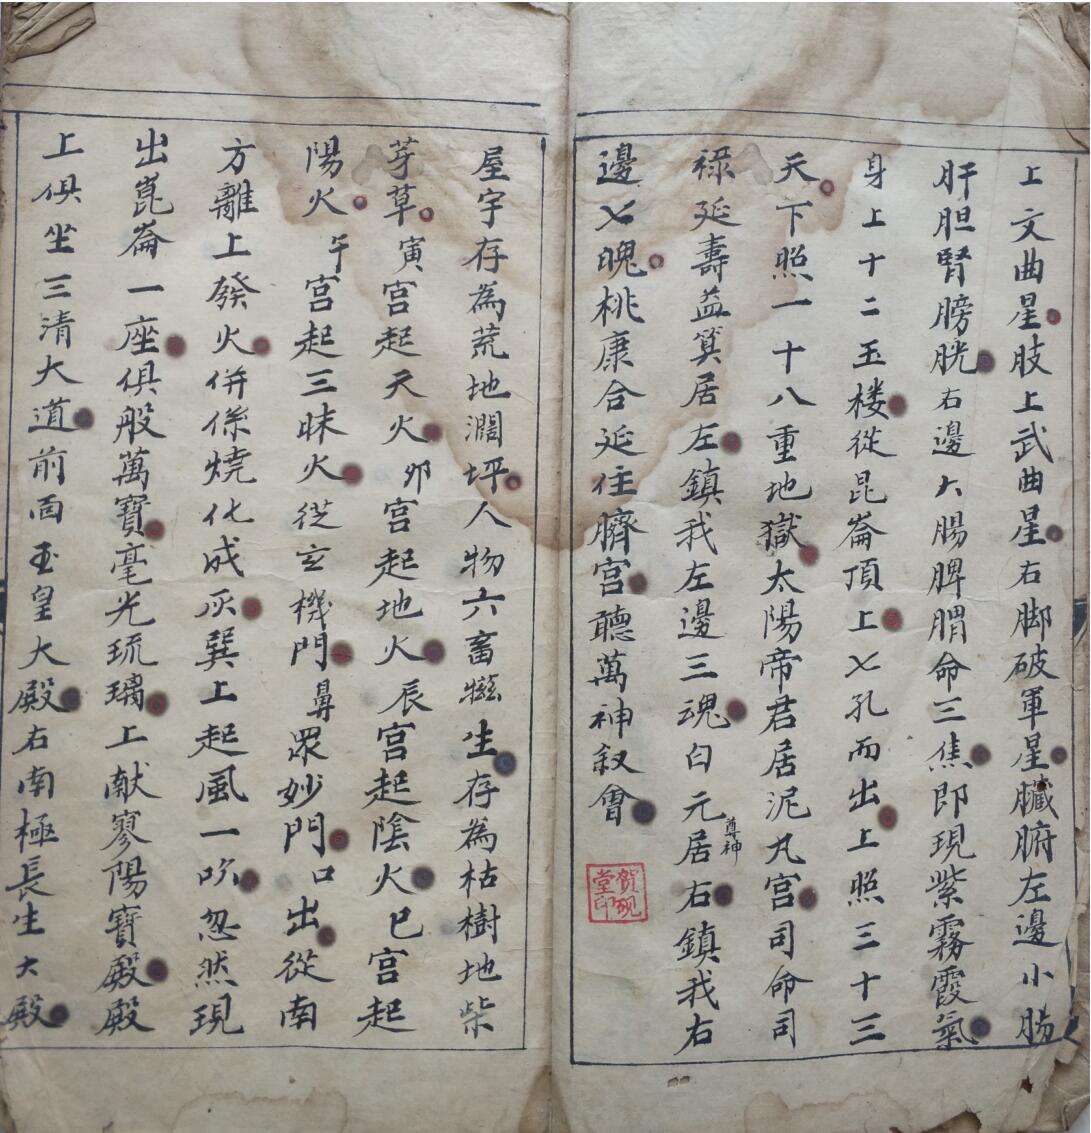 上文曲星肢上武曲星右脚破軍星臟腑左邊小腸
肝胆腎膀胱右邊大腸脾腪命三焦即現紫霧霞氣
身上十二玉楼從昆崙頂上七孔而出上照三十三
天下照一十八重地獄太陽帝君居泥丸宫司命司
禄延壽益筭居左鎮我左邊三魂白元尊神居右鎮我右
邊七魄桃康合延住臍宫聽萬神叙會
賀硯堂印
屋宇存為荒地濶坪人物六畜牲生存為枯樹地柴
芽草寅宫起天火卯宫起地火辰宫起陰火巳宫起
陽火午宫起三昧火從玄機門鼻眾妙門口出從南
方離上發火併係燒化成灰巽上起風一吹忽然現
出崑崙一座俱般萬寶毫光琉璃上献寥陽寶殿殿
上俱坐三清大道前面玉皇大殿右南極長生大殿